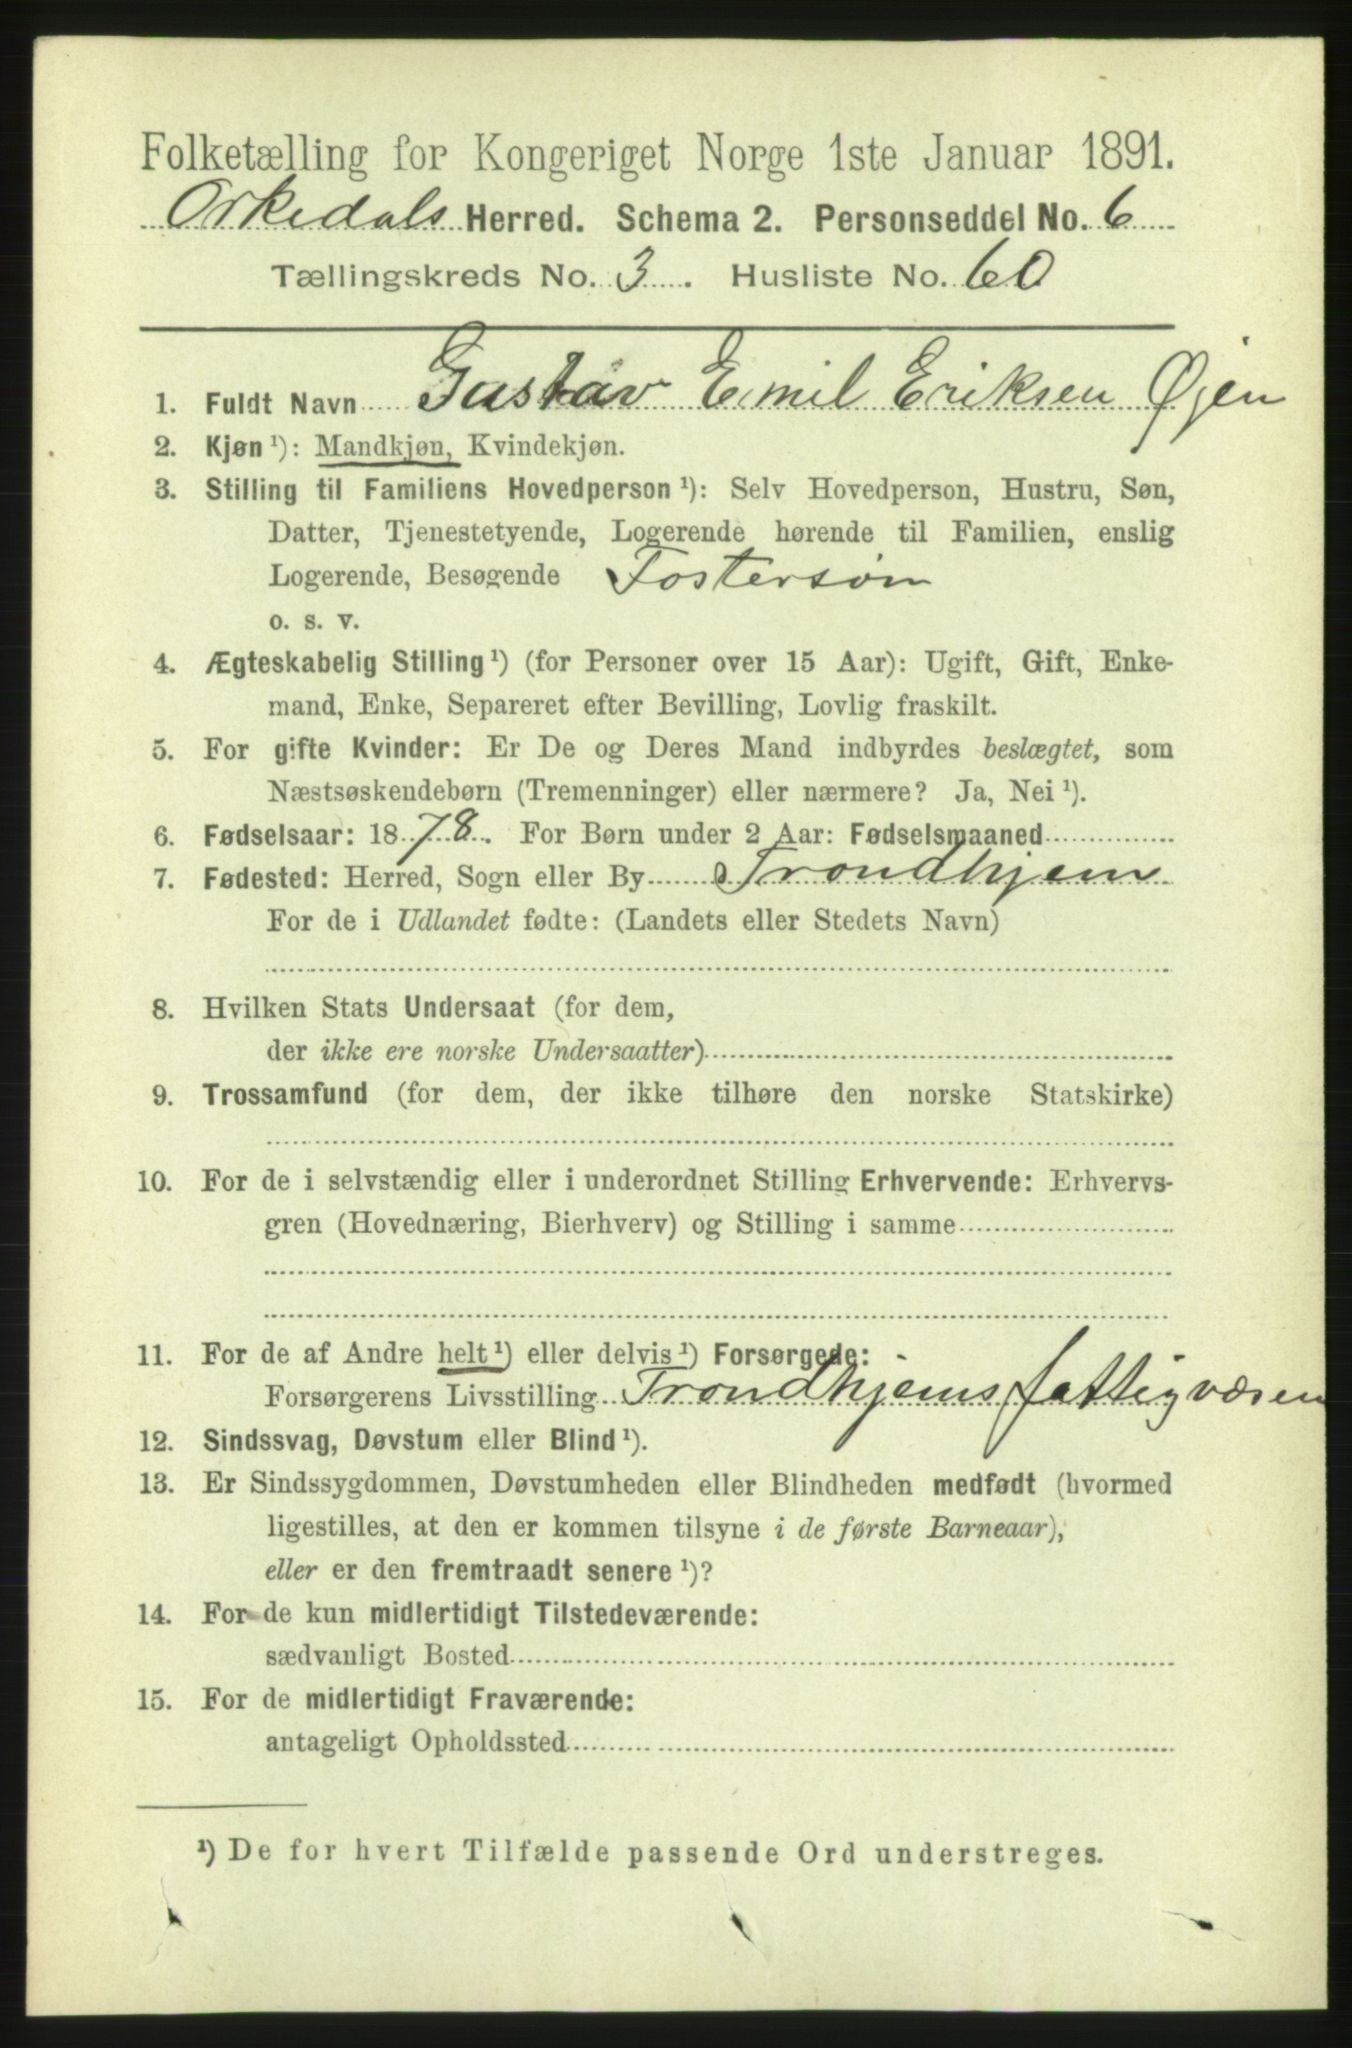 Folketælling for Kongeriget Norge 1ste Januar 1891.
Orkedals Herred. Schema 2. Personseddel No. 6
Tællingskreds No. 3. Husliste No. 60
1. Fuldt Navn Gustav Emil Eriksen Øyen
2. Kjøn¹): Mandkjøn, Kvindekjøn.
3. Stilling til Familiens Hovedperson¹): Selv Hovedperson, Hustru, Søn,
Datter, Tjenestetyende, Logerende hørende til Familien, enslig
Logerende, Besøgende Fostersøn
o. s. v.
4. Ægteskabelig Stilling¹) (for Personer over 15 Aar): Ugift, Gift, Enke-
mand, Enke, Separeret efter Bevilling, Lovlig fraskilt.
5. For gifte Kvinder: Er De og Deres Mand indbyrdes beslægtet, som
Næstsøskendebørn (Tremenninger) eller nærmere? Ja, Nei¹).
6. Fødselsaar: 1878. For Børn under 2 Aar: Fødselsmaaned
7. Fødested: Herred, Sogn eller By Trondhjem
For de i Udlandet fødte: (Landets eller Stedets Navn)
8. Hvilken Stats Undersaat (for dem,
der ikke ere norske Undersaatter)
9. Trossamfund (for dem, der ikke tilhøre den norske Statskirke)
10. For de i selvstændig eller i underordnet Stilling Erhvervende: Erhvervs-
gren (Hovednæring, Bierhverv) og Stilling i samme
11. For de af Andre helt¹) eller delvis¹) Forsørgede:
Forsørgerens Livsstilling Trondhjems fattigvæsen
12. Sindssvag, Døvstum eller Blind¹).
13. Er Sindssygdommen, Døvstumheden eller Blindheden medfødt (hvormed
ligestilles, at den er kommen tilsyne i de første Barneaar),
eller er den fremtraadt senere¹)?
14. For de kun midlertidigt Tilstedeværende:
sædvanligt Bosted
15. For de midlertidigt Fraværende:
antageligt Opholdssted
¹) De for hvert Tilfælde passende Ord understreges.